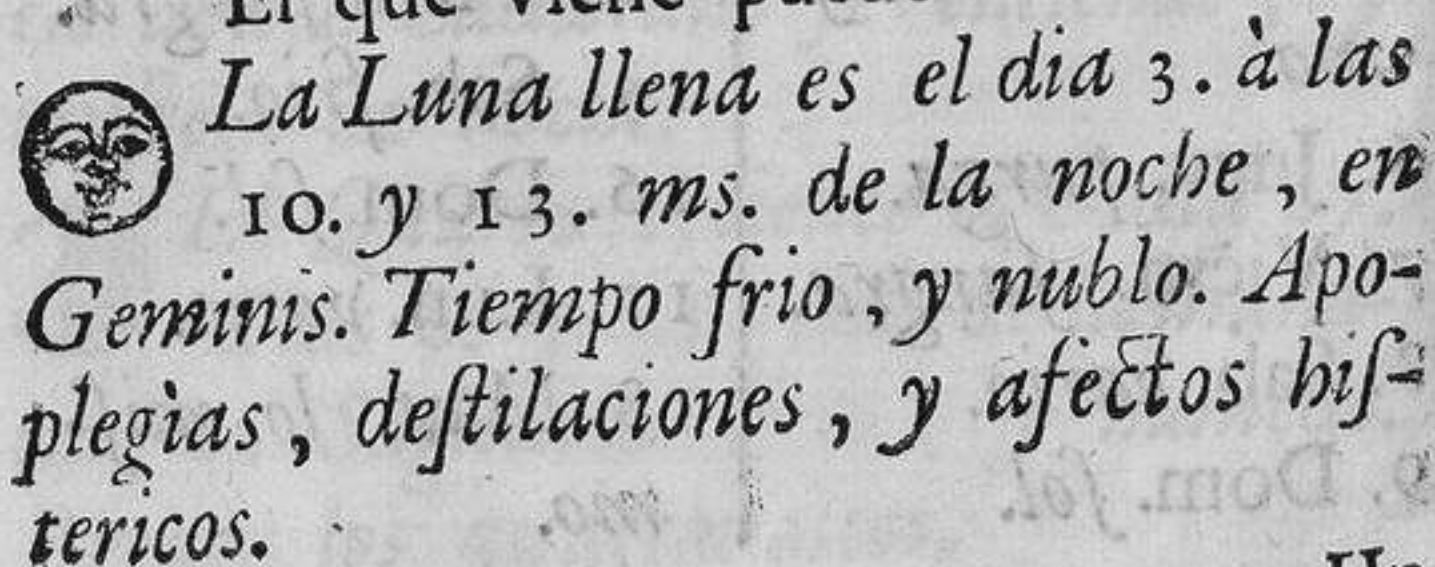 El que viene
La Luna llena es el dia 3. à las
10. y 13. ms. de la noche, en
Geminis. Tiempo frio, y nublo. Apo-
plegìas, deſtilaciones, y afectos hiſ-
tericos.